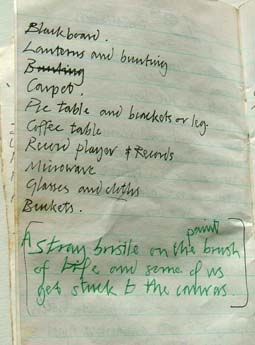 Blackboard.
Lanterns and bunting
Bunting
Carpet.
Pic table and brackets or leg.
Coffee table
Record player & Records
Microwave
Glasses and cloths
Buckets.
paint
A stray bristle on the brush
of life and some of us
get stuck to the canvas